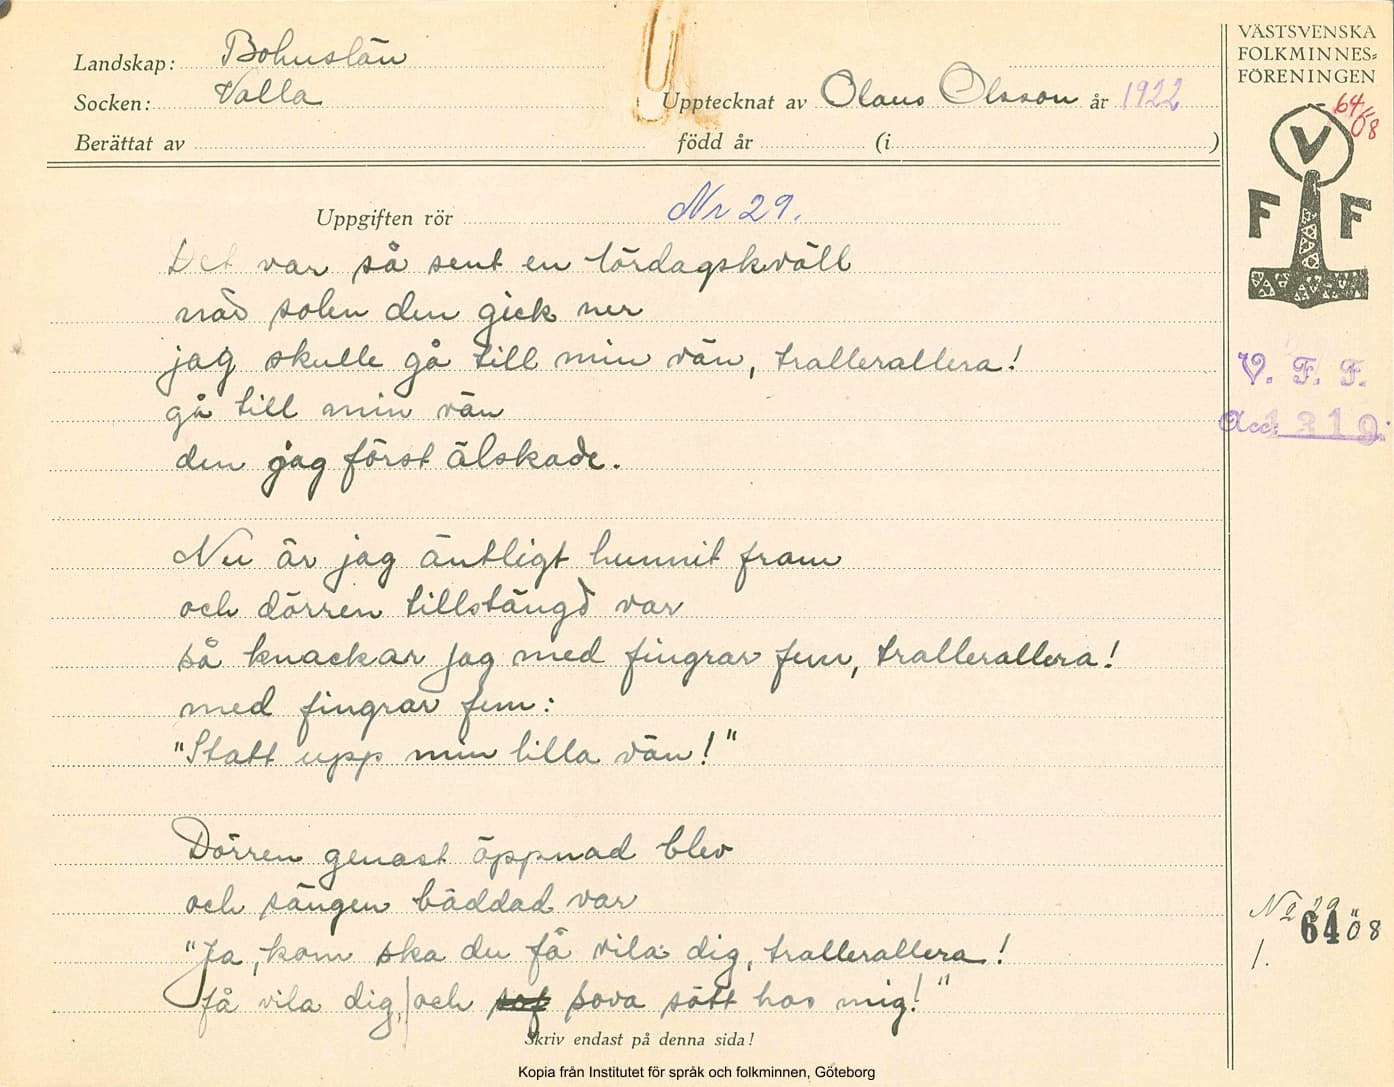 Landskap: Bohuslän
Socken: Valla
Upptecknat av Olaus Olsson år 1922
Berättat av född år (i )
VÄSTSVENSKA
FOLKMINNES=
FÖRENINGEN
64 08
V
F F
Uppgiften rör Nr 29.
Det var så sent en lördagskväll
när solen den gick ner
jag skulle gå till min vän, trallerallera!
gå till min vän
den jag först älskade.
V. F. F.
Acc. 1319.
Nu är jag äntligt hunnit fram
och dörren tillstängd var
så knackar jag med fingrar fem, trallerallera!
med fingrar fem:
"Statt upp min lilla vän!"
Dörren genast öppnad blev
och sängen bäddad var
"Ja, kom ska du få vila dig, trallerallera!
få vila dig, och sof sova sött hos mig!"
No 29
64 08
1.
Skriv endast på denna sida!
Kopia från Institutet för språk och folkminnen, Göteborg